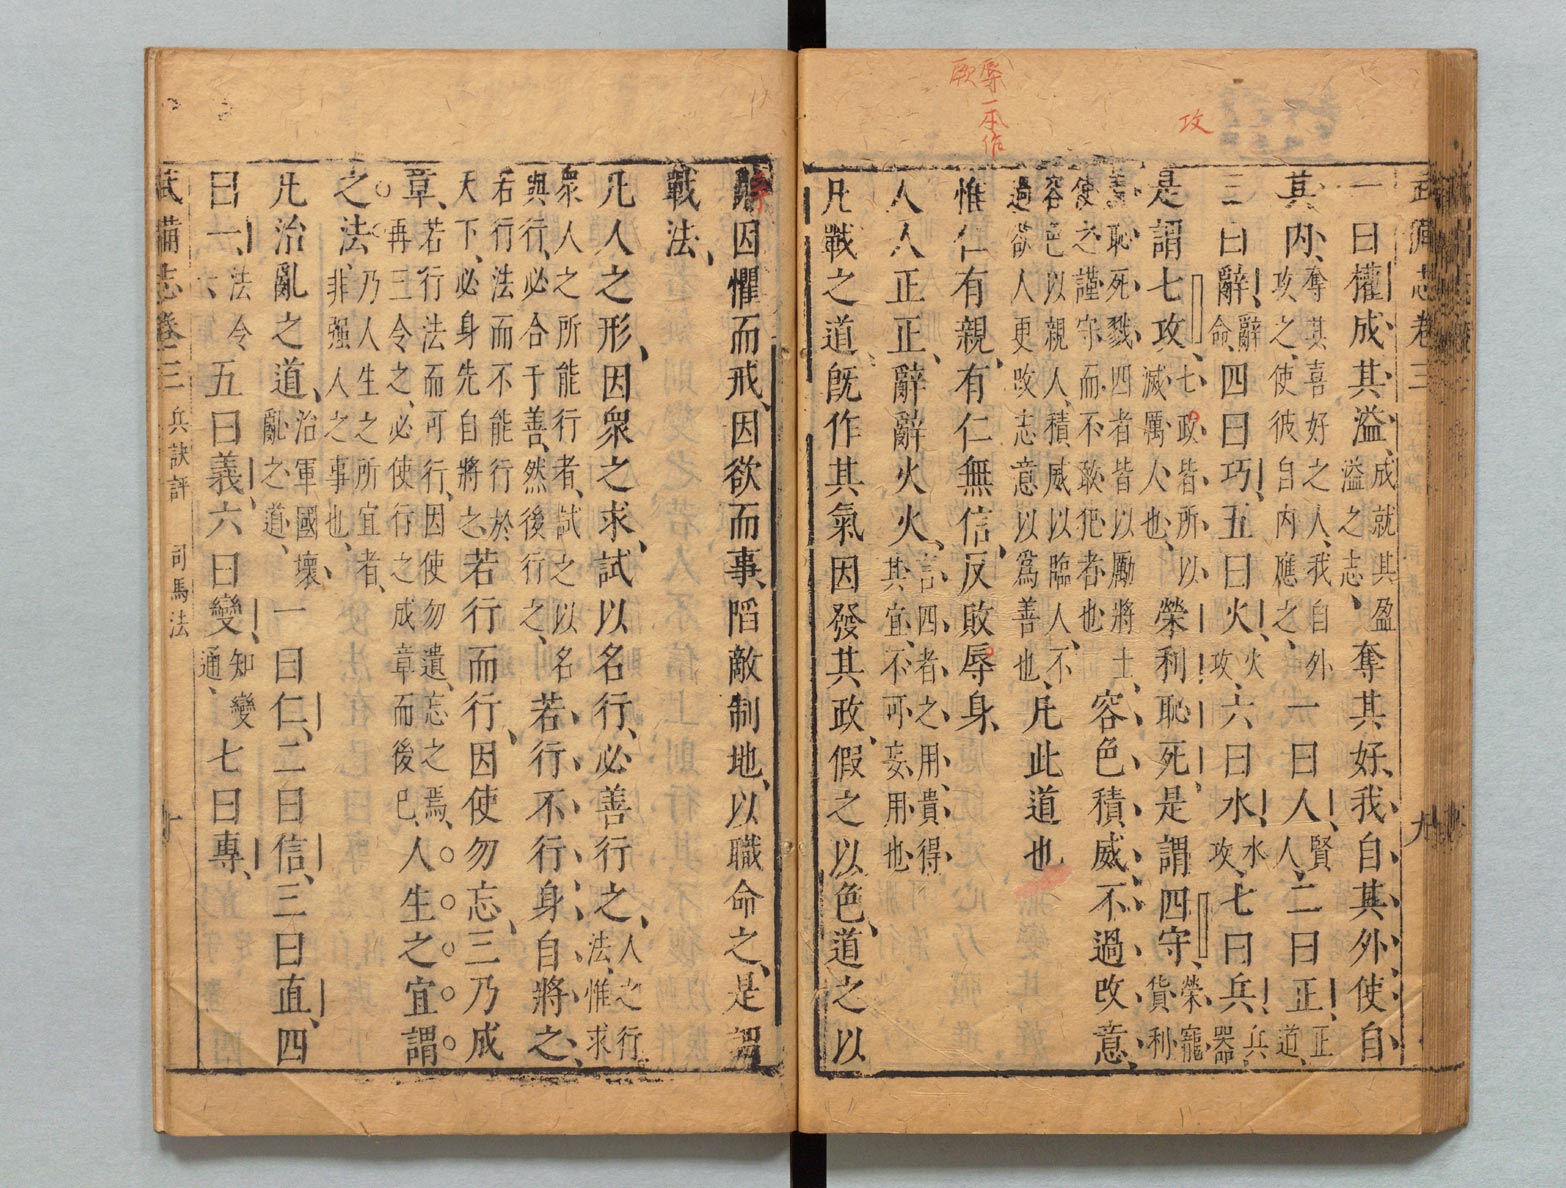 攻
辱一本作
厥
武備志卷三 九
一曰權成其溢、成就其盈
溢之志、奪其好、我自其外、使自
其內、奪其喜好之人、我自外
攻之、使彼自內應之、一曰人、賢
人、二曰正、正
道、
三曰辭、辭
命、四曰巧、五曰火、火
攻、六曰水、水
攻、七曰兵、兵
器
是謂七攻、七政皆所以
滅厲人也、榮利恥死是謂四守、榮寵
貨利
羞恥死戮四者皆以勵將士、
使之謹守而不敢犯者也容色積威不過改意、
容色以親人、積威以臨人、不
過欲人更改志意以爲善也、凡此道也
惟仁有親、有仁無信、反敗辱身、
人人正正、辭辭火火、言四者之用、貴得
其宜、不可妄用也
凡戰之道既作其氣因發其政、假之以色、道之以
辭因懼而戒、因欲而事、陷敵制地、以職命之、是謂
戰法、
凡人之形、因衆之求、試以名行、必善行之、人之行
法、惟求
衆人之所能行者、試之以名
與行、必合于善、然後行之、若行不行、身自將之、
若行法而不能行於
天下、必身先自將之、若行而行、因使勿忘、三乃成
章、若行法而可行、因使勿遺忘之焉、
再三令之、必使行之成章而後已、人生之宜謂
之法、乃人生之所宜者、
非强人之事也、
凡治亂之道、治軍國壞
亂之道、一曰仁、二曰信、三曰直、四
曰一、法令
五曰義、六曰變、知變
通、七曰專、
武備志卷三 兵訣評 司馬法 十